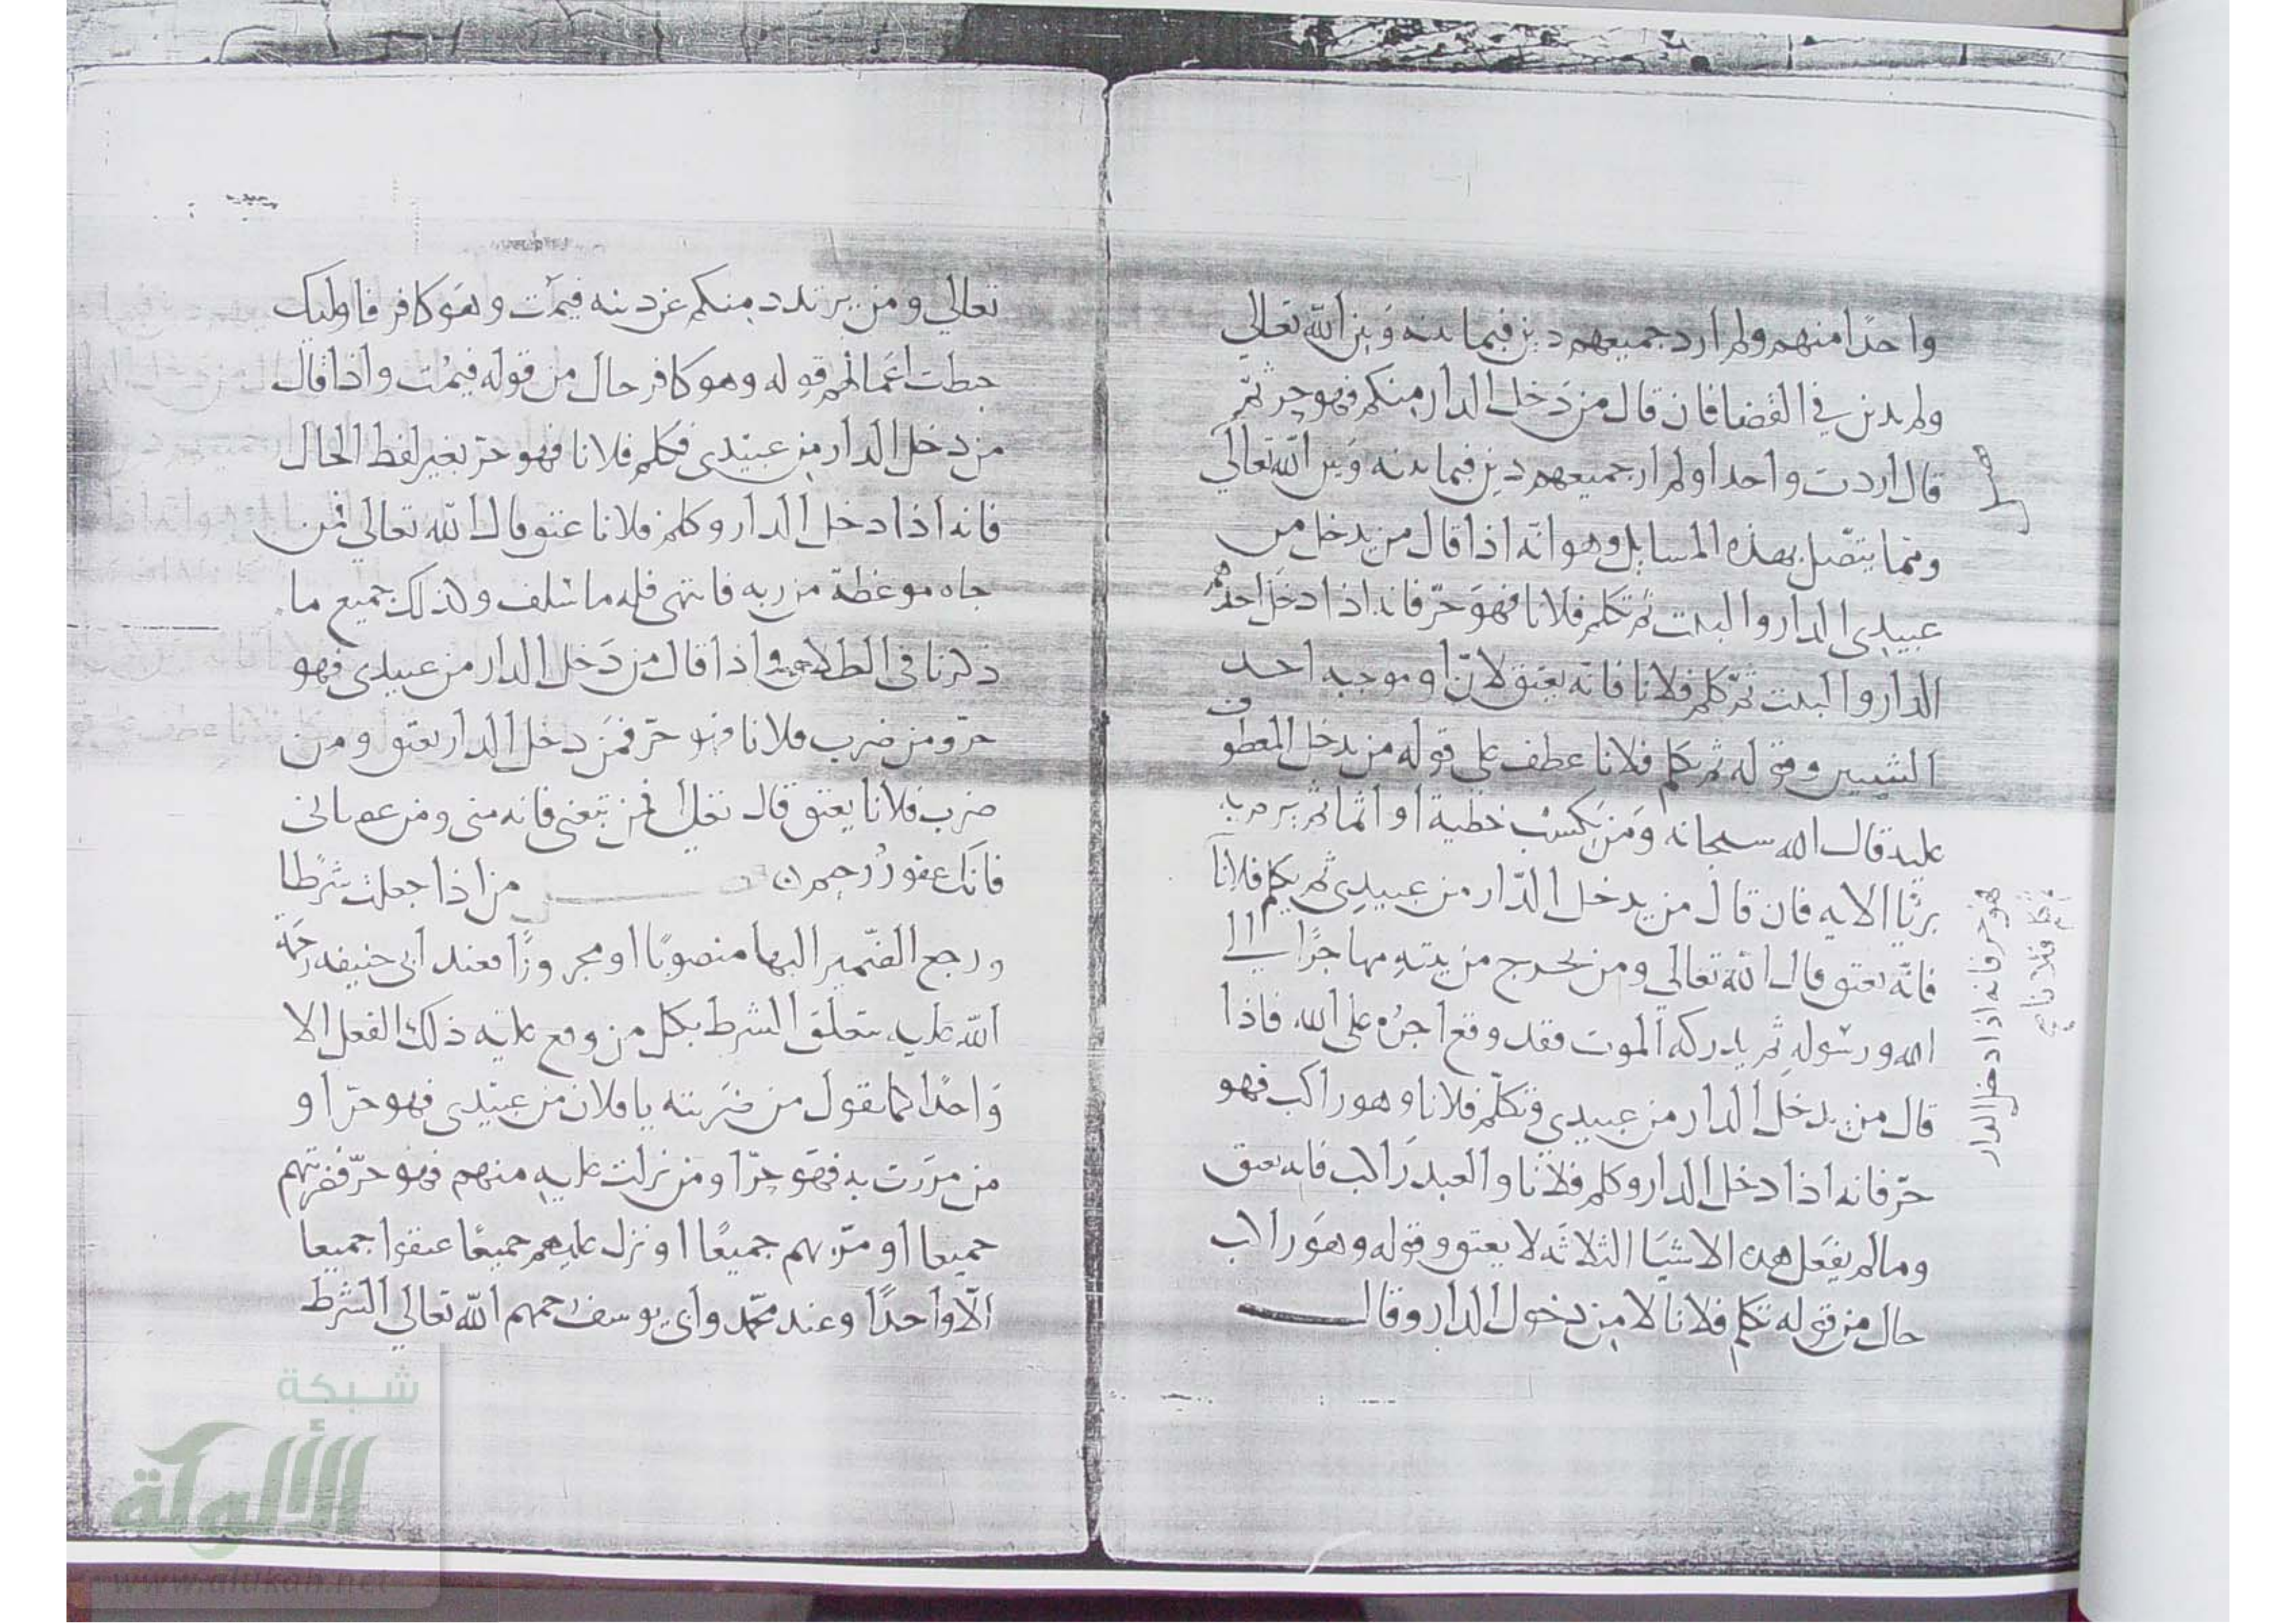 واحدًا منهم ولم ارد جميعهم دين فيما بينه وبين الله تعالي
ولم يدين في القضا فان قال من دخل الدار منكم فهو حر ثم
قال اردت واحدا ولم ارد جميعهم دين فيما بينه وبين الله تعالي
ومما يتصل بهذه المسايل وهو انه اذا قال من يدخل من
عبيدي الدار والبيت ثم تكلم فلانا فهو حر فانه اذا دخل احدهم
الدار والبيت ثم كلم فلانا فانه يعتق لان او موجبه احد
الشيين وقوله ثم يكلم فلانا عطف علي قوله من يدخل المعطوف
عليه قال الله سبحانه ومن يكسب خطية او اثما ثم يرم به
بريا الايه فان قال من يدخل الدار من عبيدي ثم يكلم فلانا
فانه يعتق قال الله تعالي ومن يخرج من بيته مهاجرًا الي
الله ورسوله ثم يدركه الموت فقد وقع اجره علي الله فاذا
قال من يدخل الدار من عبيدي فتكلم فلانا وهو راكب فهو
حر فانه اذا دخل الدار وكلم فلانا والعبد راكب فانه يعتق
وما لم يفعل هذه الاشيا الثلاثه لا يعتق وقوله وهو راكب
حال من قوله تكلم فلانا لا من دخول الدار وقال
فهو حر فانه اذا دخل الدار
فلانا
تعالي ومن يرتدد منكم عن دينه فيمت وهو كافر فاوليك
حبطت اعمالهم قوله وهو كافر حال من قوله فيمت واذا قال
من دخل الدار من عبيدي فكلم فلانا فهو حر بغير لفظ الحال
فانه اذا دخل الدار وكلم فلانا عتق قال الله تعالي فمن
جاه موعظة من ربه فانتهي فله ما سلف وكذلك جميع ما
ذكرنا في الطلاق واذا قال من دخل الدار من عبيدي فهو
حر ومن ضرب فلانا فهو حر فمن دخل الدار يعتق ومن
ضرب فلانا يعتق قال تعالي فمن تبعني فانه مني ومن عصاني
فانك غفور رحيم من اذا جعلت شرطا
ورجع الضمير اليها منصوبًا او مجرورًا فعند ابي حنيفه رحمة
الله عليه يتعلق الشرط بكل من وقع عليه ذلك الفعل الا
واحدًا كما تقول من ضربته يا فلان من عبيدي فهو حر او
من مررت به فهو حر او من نزلت عليه منهم فهو حر فضربهم
جميعا او مر بهم جميعًا او نزل عليهم جميعًا عتقوا جميعا
الا واحدًا وعند محمد وابي يوسف رحمهم الله تعالي الشرط
شبكة
الألوكة
www.alukah.net